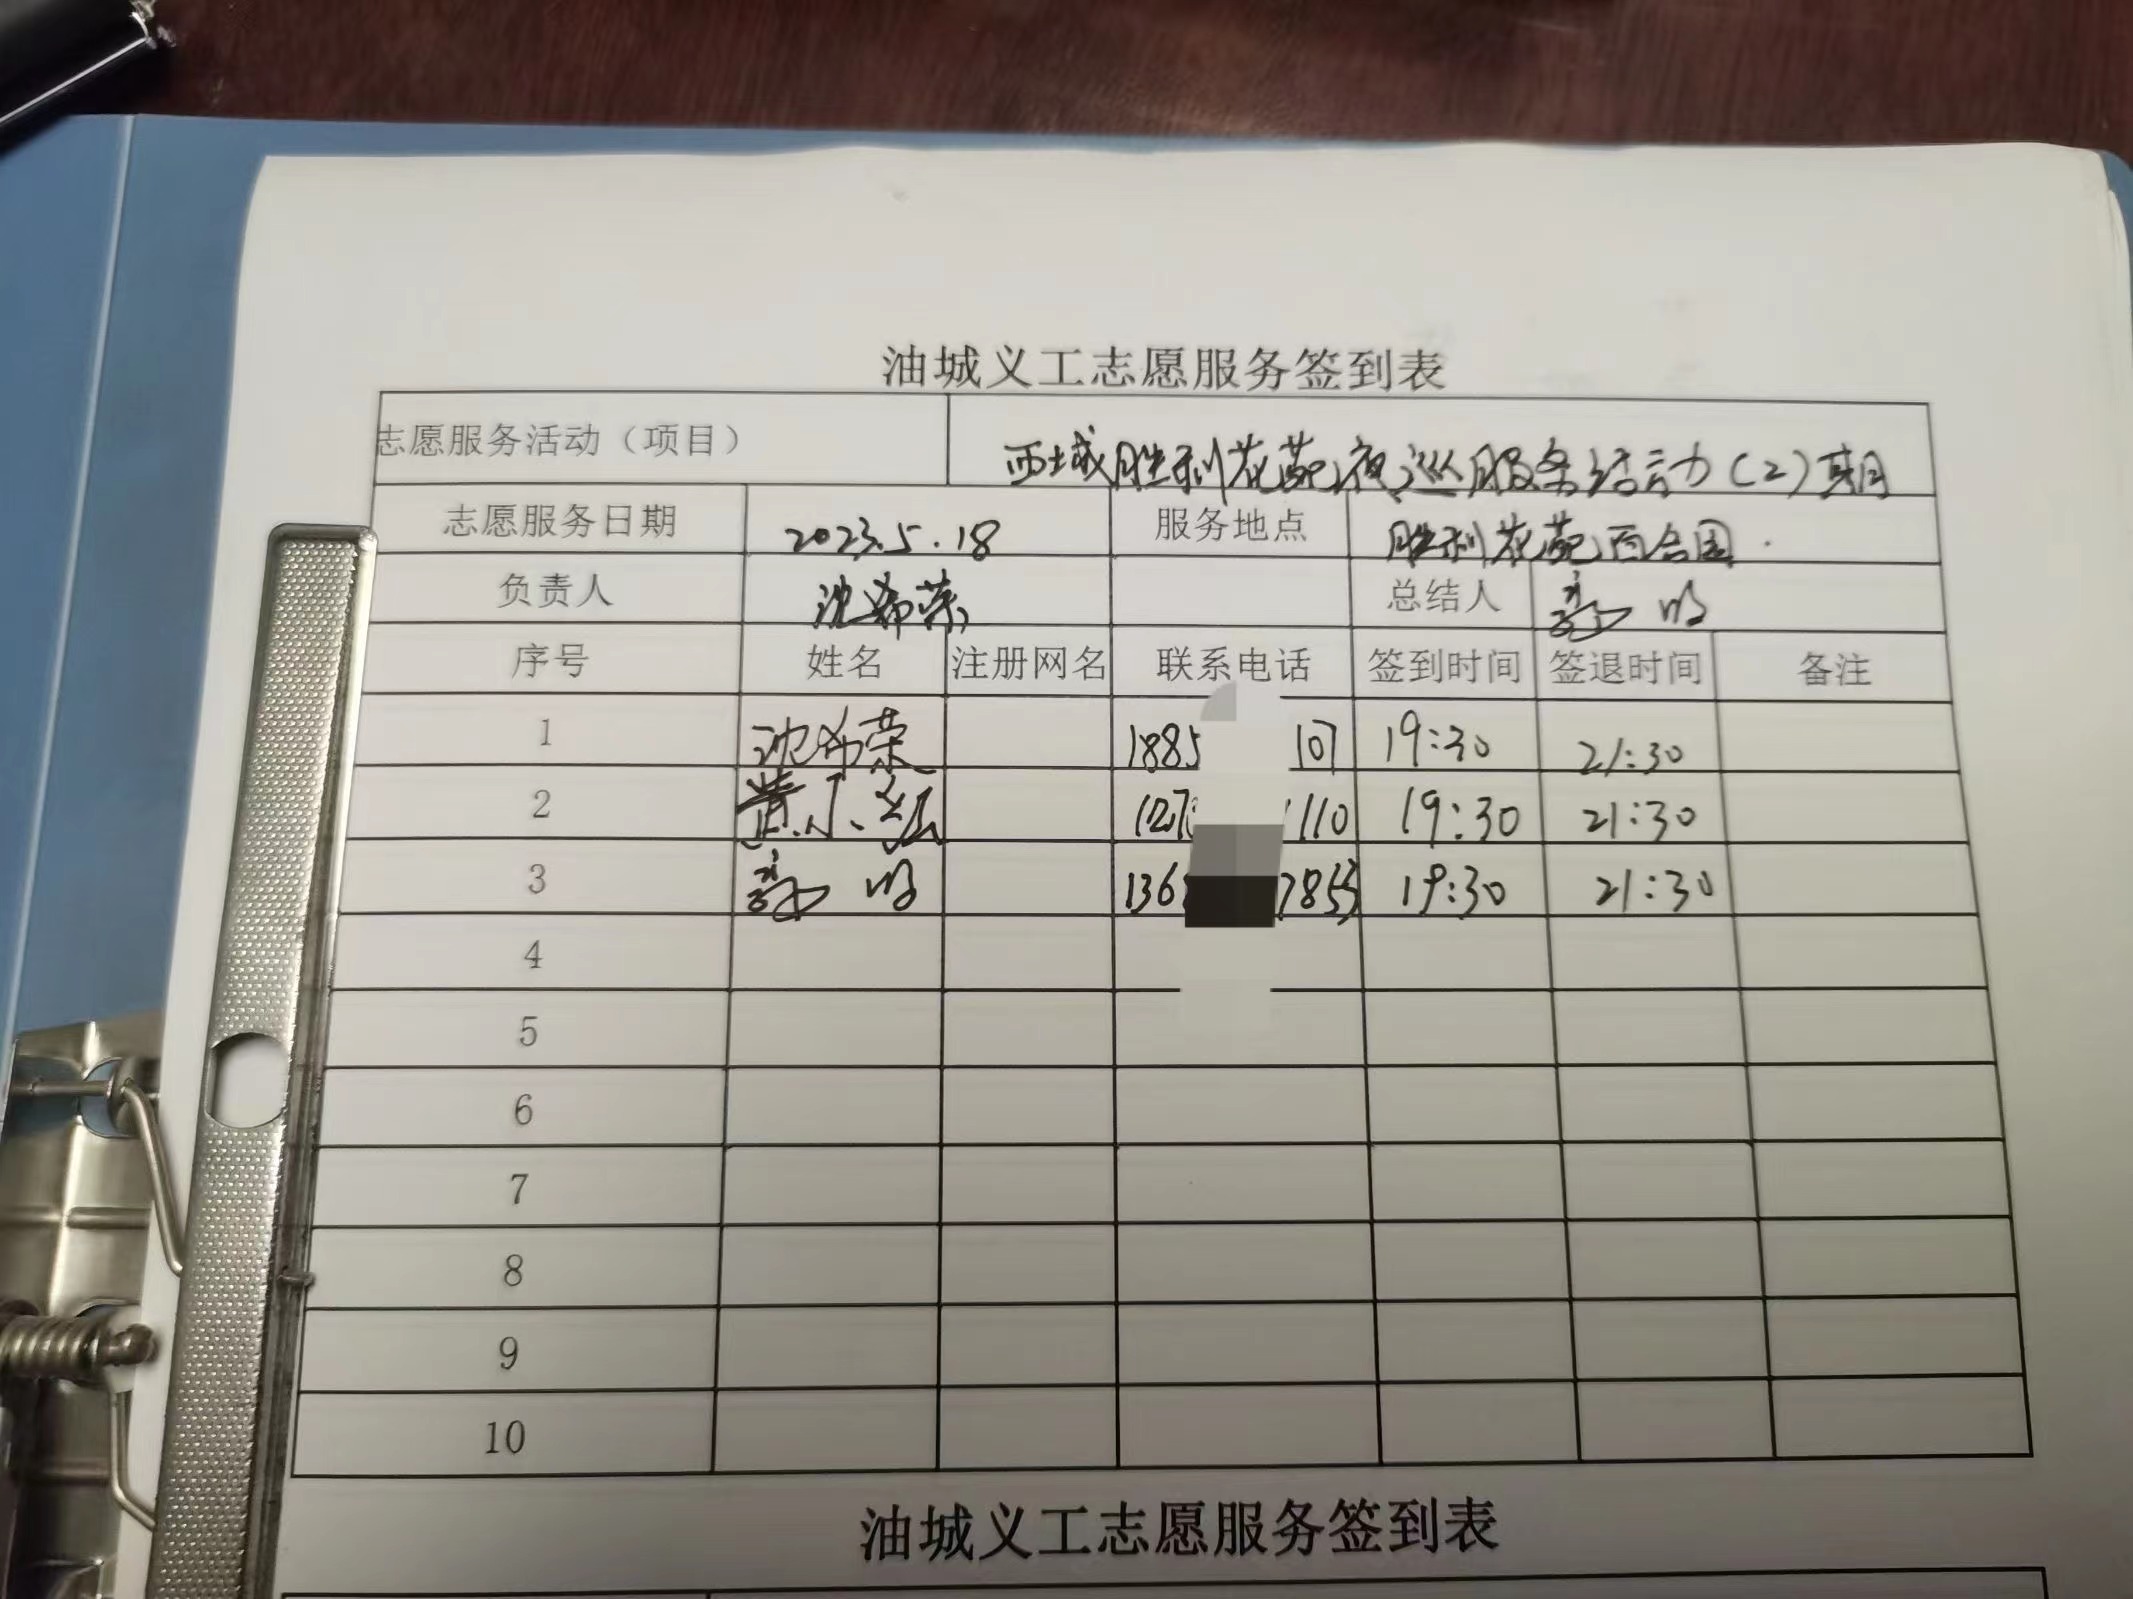 油城义工志愿服务签到表
志愿服务活动（项目） 西城胜利花苑夜巡服务活动(2)期
志愿服务日期 2023.5.18 服务地点 胜利花苑百合园
负责人 沈希荣 总结人 明
序号 姓名 注册网名 联系电话 签到时间 签退时间 备注
1 沈希荣 1885 107 19:30 21:30
2 黄小红 110 19:30 21:30
3 明 136 7855 19:30 21:30
4
5
6
7
8
9
10
油城义工志愿服务签到表